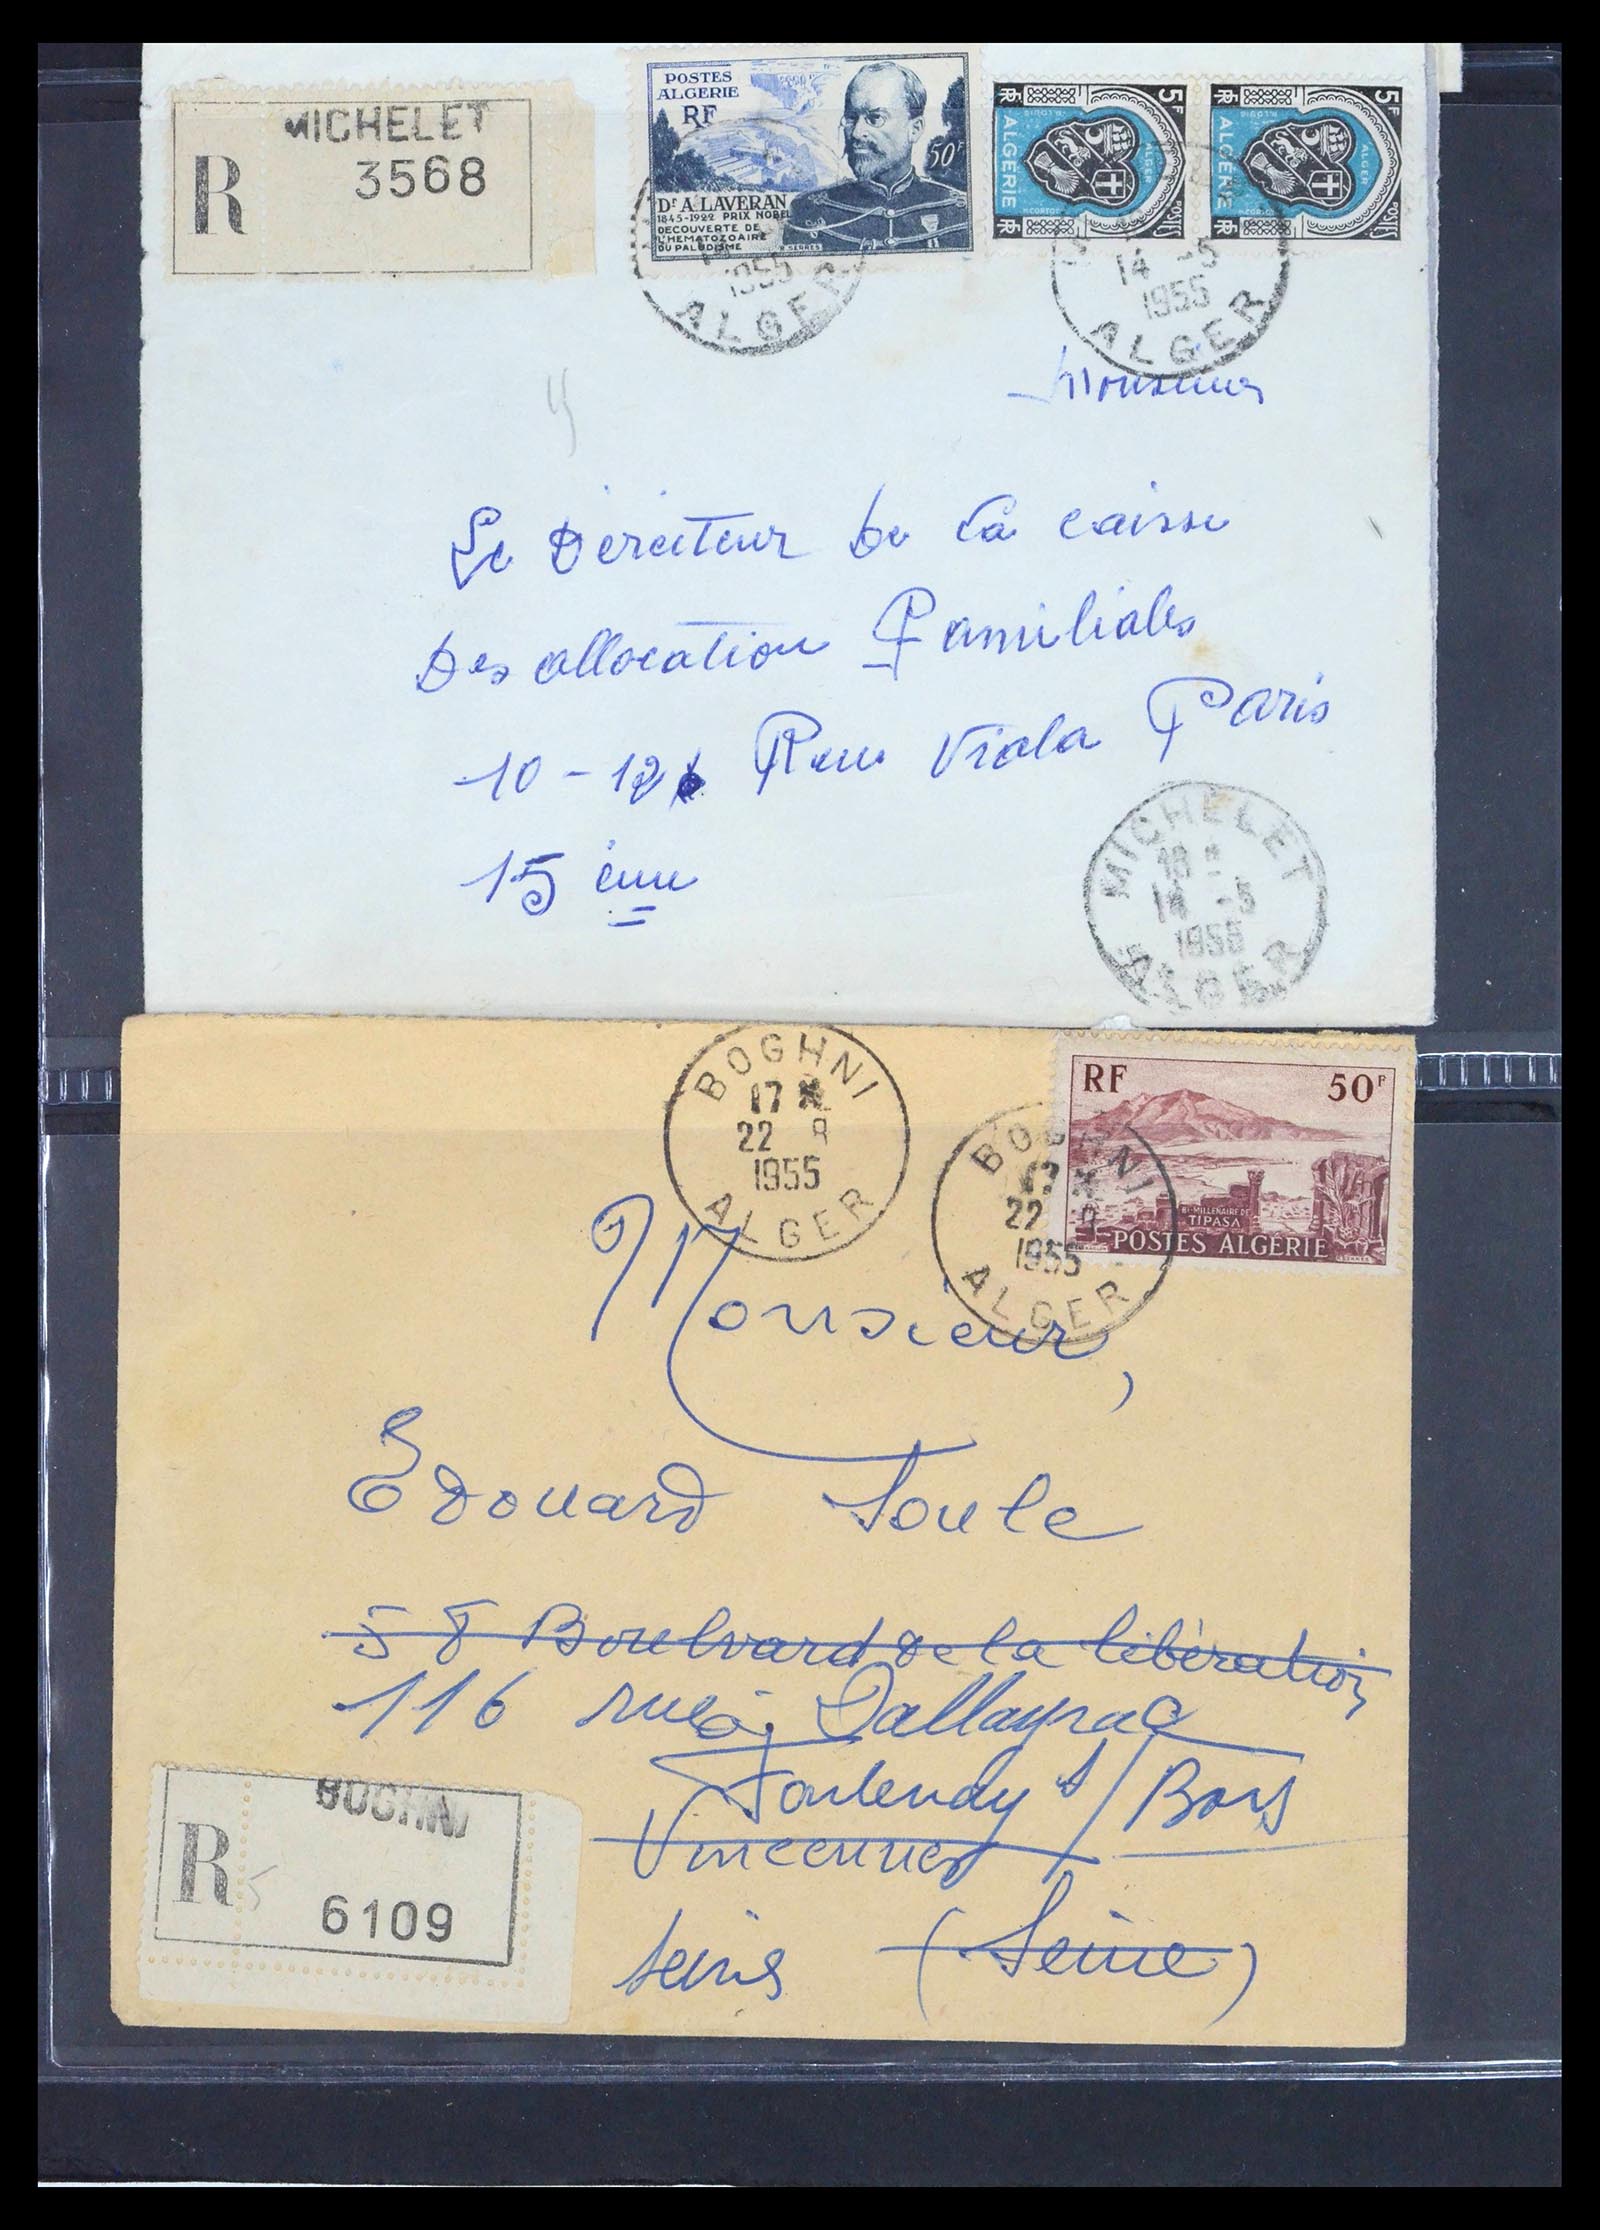 MICHELET
R 3568
POSTES
ALGERIE
RF
50F
Dr A. LAVERAN
1845-1922 PRIX NOBEL
DECOUVERTE DE
L'HEMATOZOAIRE
DU PALUDISME
R. SERRES
1955
ALGER
5F
ALGERIE
ALGER
POSTES
RF
5F
ALGERIE
ALGER
POSTES
RF
14 -5
1955
ALGER
Monsieur
Le Dirécteur De La caisse
Des allocation Familiales
10-12 Rue Viala Paris
15 ème
MICHELET
18
14 -5
1955
ALGER
BOGHNI
17
22 8
1955
ALGER
BOGHNI
17
22 8
1955
ALGER
RF 50F
BI-MILLENAIRE DE
TIPASA
POSTES ALGERIE
Monsieur,
Edouard Soule
58 Boulevard de la libération
116 rue Dallayrac
Fontenay s/ Bois
Vincennes
Seine (Seine)
BOGHNI
R 5
6109